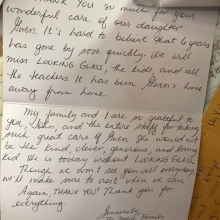 THANK YOU so much for your
wonderful care of our daughter
Gwen. It's hard to believe that 6 years
has gone by sooo quickly. We will
miss LOOKING GLASS, the kids, and all
the teachers. It has been Gwen's home
away from home.
My family and I are so grateful to
you, John, and the entire staff for taking
such great care of Gwen. She would not
be the kind, clever, generous, and loving
kid she is today without LOOKING GLASS.
Though we won't see you all everyday,
we'll make sure to visit when we can.
Again, THANK YOU! Thank you for
everything.
Sincerely,
The Family